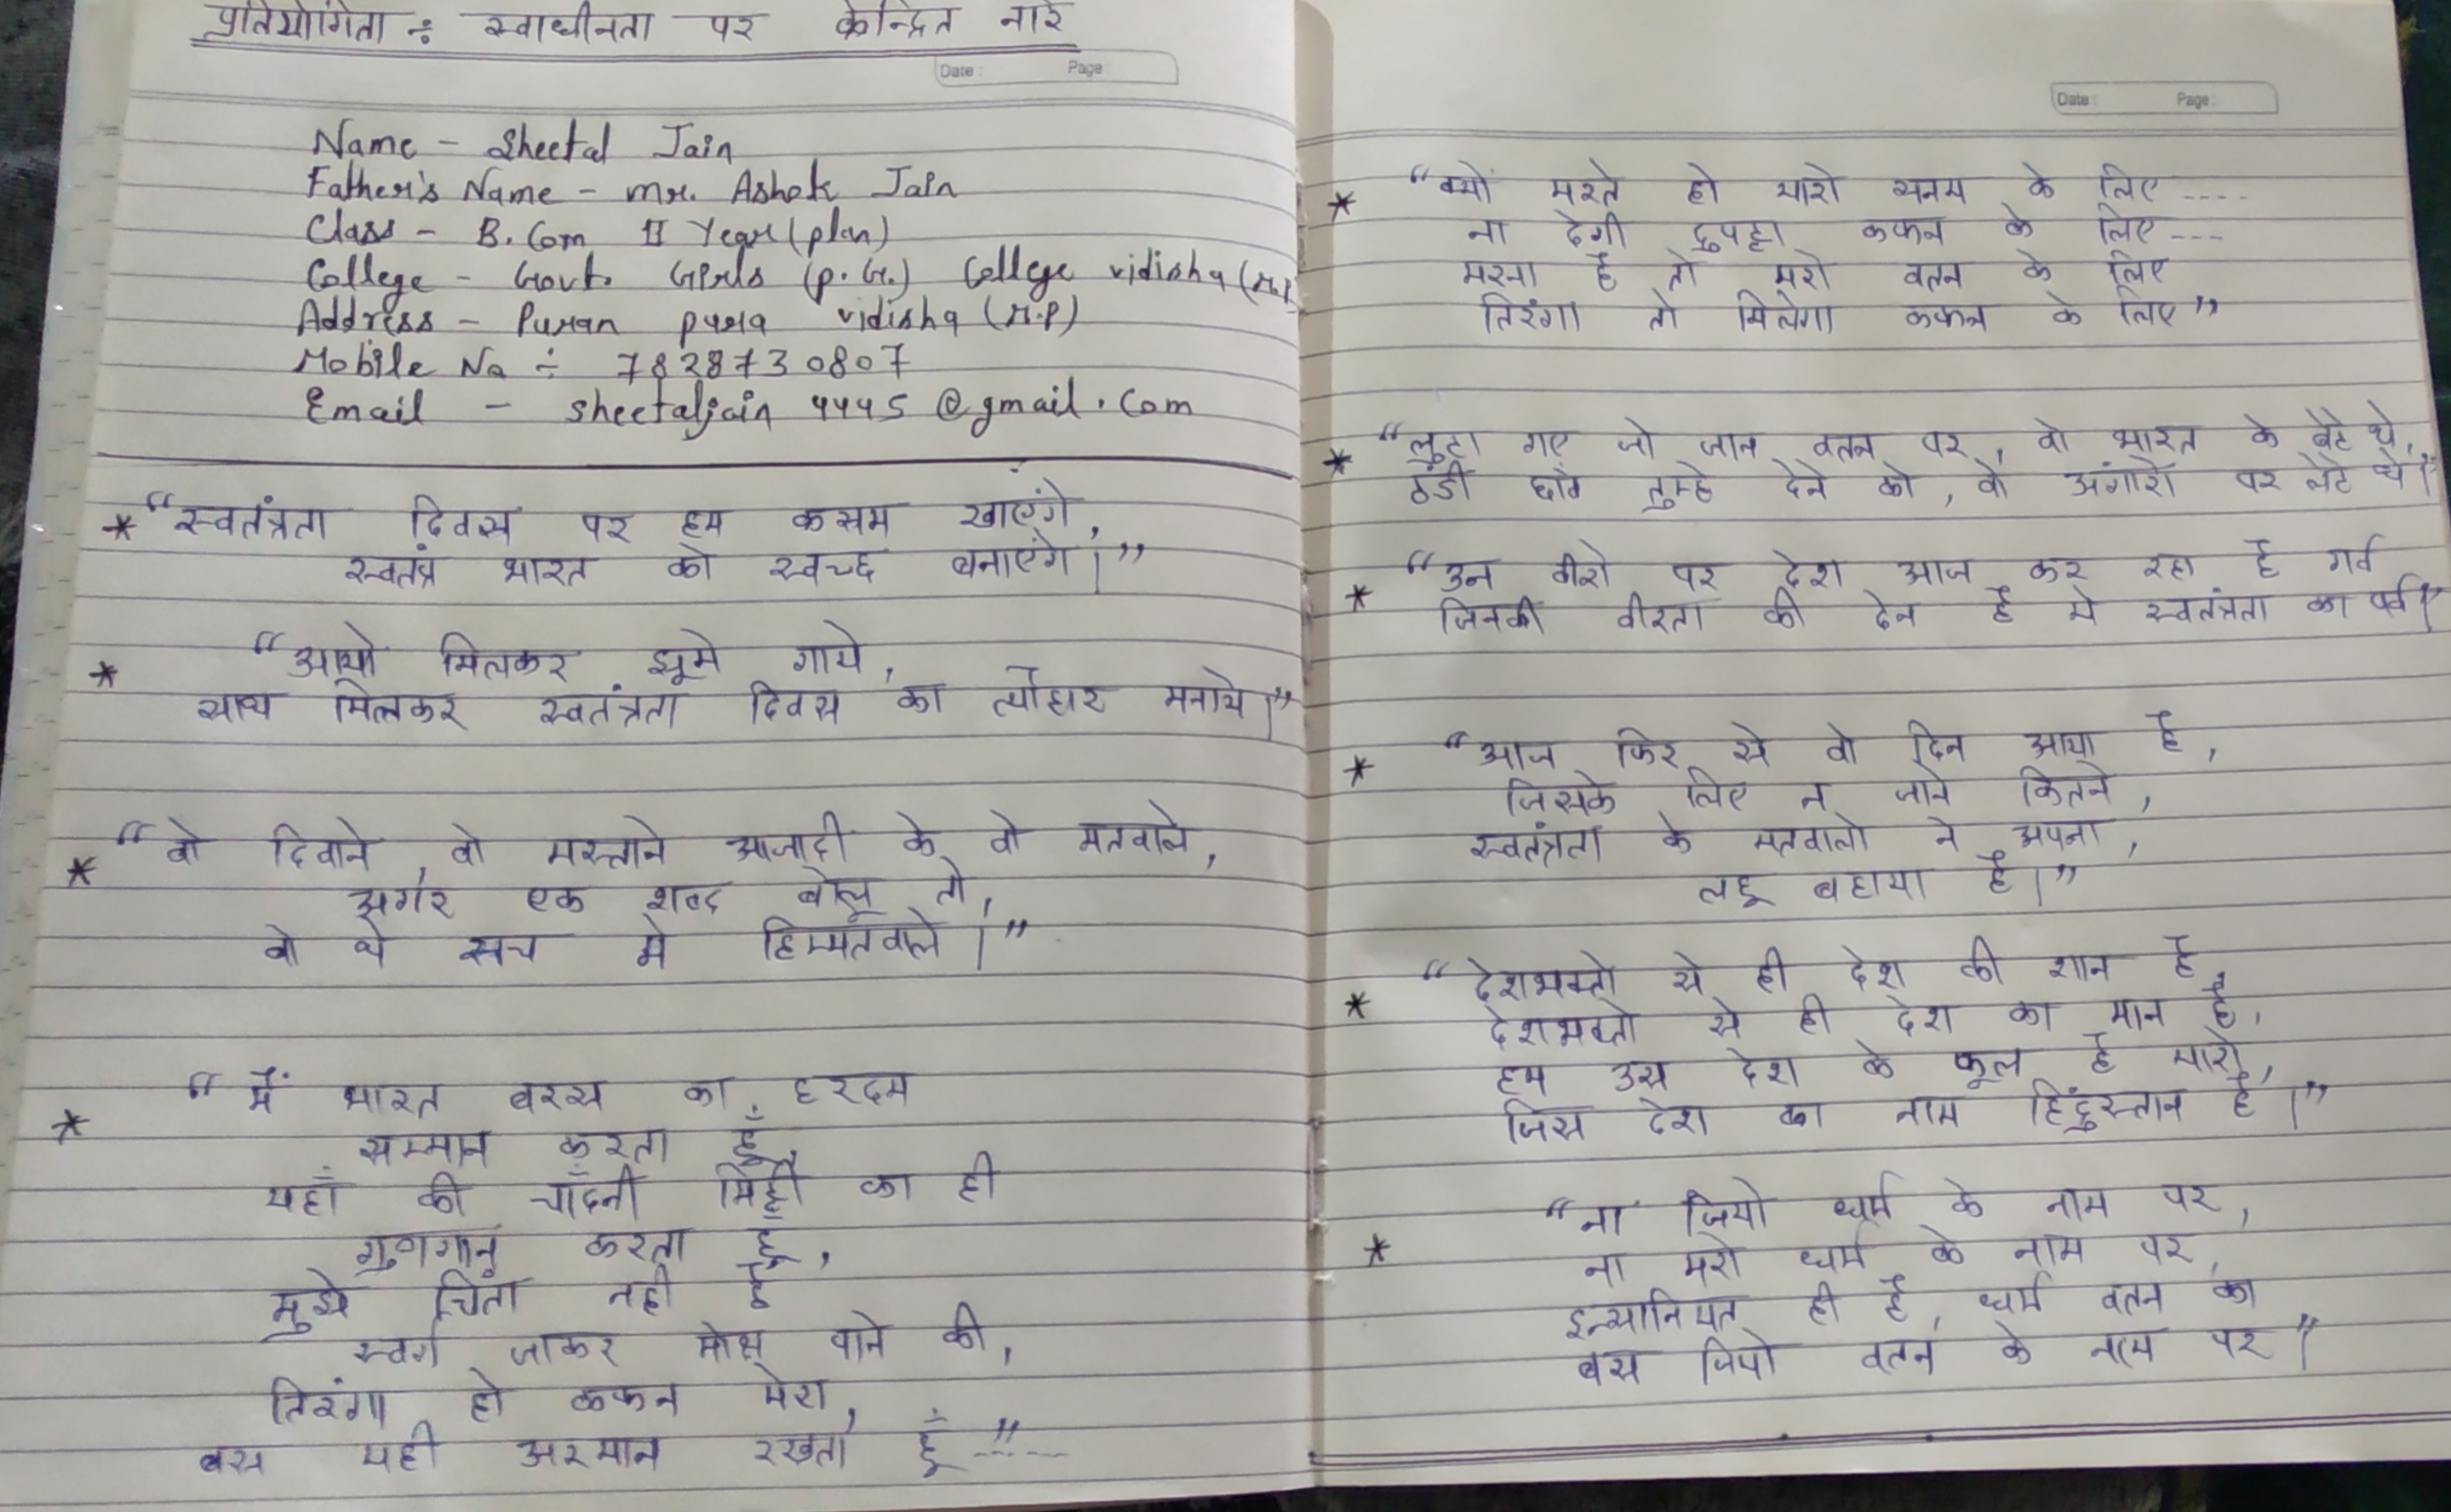 प्रतियोगिता ÷ स्वाधीनता पर केन्द्रित नारे
Date : Page
Name - Sheetal Jain
Father's Name - Mr. Ashok Jain
Class - B.Com II Year (plan)
College - Govt. Girls (P.G.) College vidisha (M.P
Address - Puran pura vidisha (M.P)
Mobile No ÷ 7828730807
Email - sheetaljain 4445 @gmail.com
* "स्वतंत्रता दिवस पर हम कसम खाएंगे,
स्वतंत्र भारत को स्वच्छ बनाएंगे।"
* "आयो मिलकर झूमे गाये,
साथ मिलकर स्वतंत्रता दिवस का त्यौहार मनाये।"
* "वो दिवाने, वो मस्ताने आजादी के वो मतवाले,
अगर एक शब्द बोलू तो,
वो थे सच मे हिम्मतवाले।"
* "मैं भारत बरस का हरदम
सम्मान करता हूँ,
यहाँ की चाँदनी मिट्टी का ही
गुणगान करता हूँ,
मुझे चिंता नही है
स्वर्ग जाकर मोक्ष पाने की,
तिरंगा हो कफन मेरा,
बस यही अरमान रखता हूँ"----
Date : Page :
* "क्यों मरते हो यारो सनम के लिए ----
ना देगी दुपट्टा कफन के लिए ---
मरना है तो मरो वतन के लिए
तिरंगा तो मिलेगा कफन के लिए"
* "लुटा गए जो जान वतन पर, वो भारत के बेटे थे,
ठंडी छांव तुम्हे देने को, वो अंगारो पर लेटे थे।"
* "उन वीरो पर देश आज कर रहा है गर्व
जिनकी वीरता की देन है ये स्वतंत्रता का पर्व।"
* "आज फिर से वो दिन आया है,
जिसके लिए न जाने कितने,
स्वतंत्रता के मतवालो ने अपना,
लहू बहाया है।"
* "देशभक्तो से ही देश की शान है,
देशभक्तो से ही देश का मान है,
हम उस देश के फूल है यारो,
जिस देश का नाम हिंदुस्तान है।"
* "ना जियो धर्म के नाम पर,
ना मरो धर्म के नाम पर,
इन्सानियत ही है, धर्म वतन का
बस जियो वतन के नाम पर।"